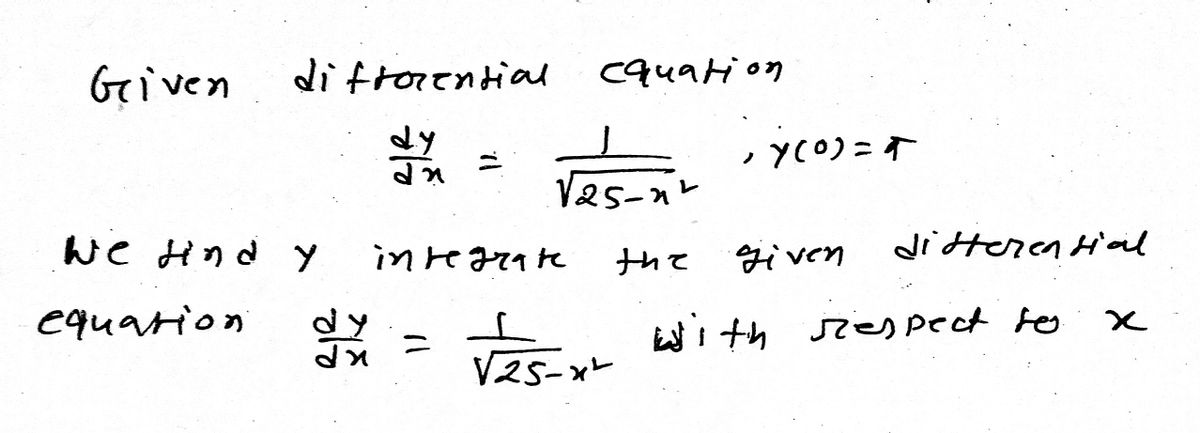 Given differential equation
dy/dx = 1/√25-x² , y(0) = π
We find y integrate the given differential
equation dy/dx = 1/√25-x² with respect to x